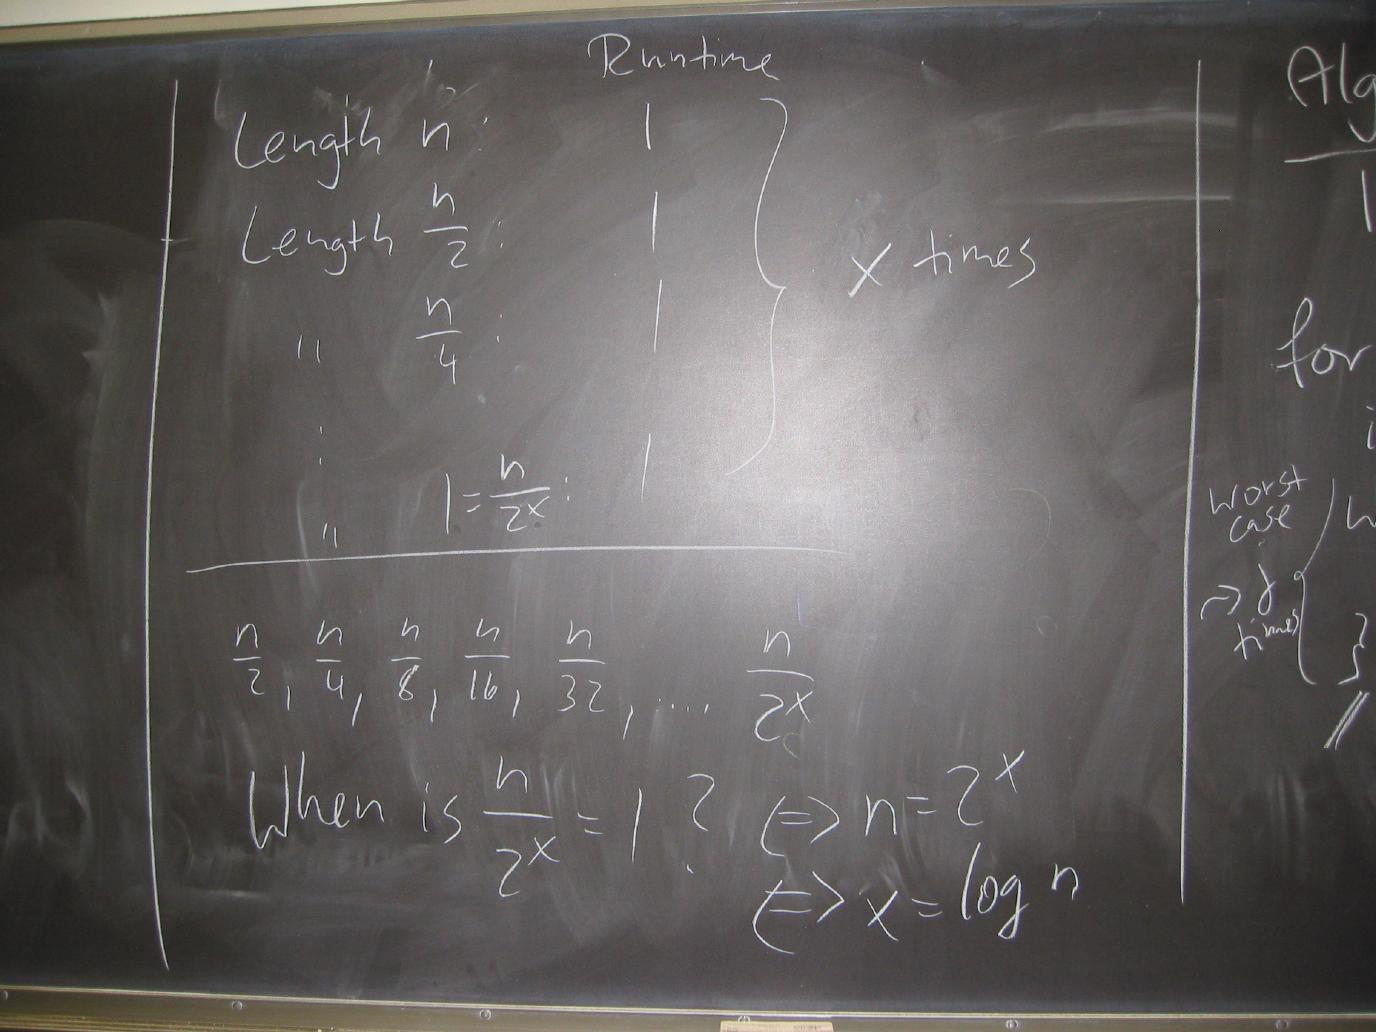 Runtime
Length n: 1
Length n/2: 1
x times
" n/4: 1
⋮
" 1 = n/2^x: 1
n/2, n/4, n/8, n/16, n/32, .... n/2^x
When is n/2^x = 1 ? <=> n = 2^x
<=> x = log n
Alg
1
for
worst
case
→ j
times
}